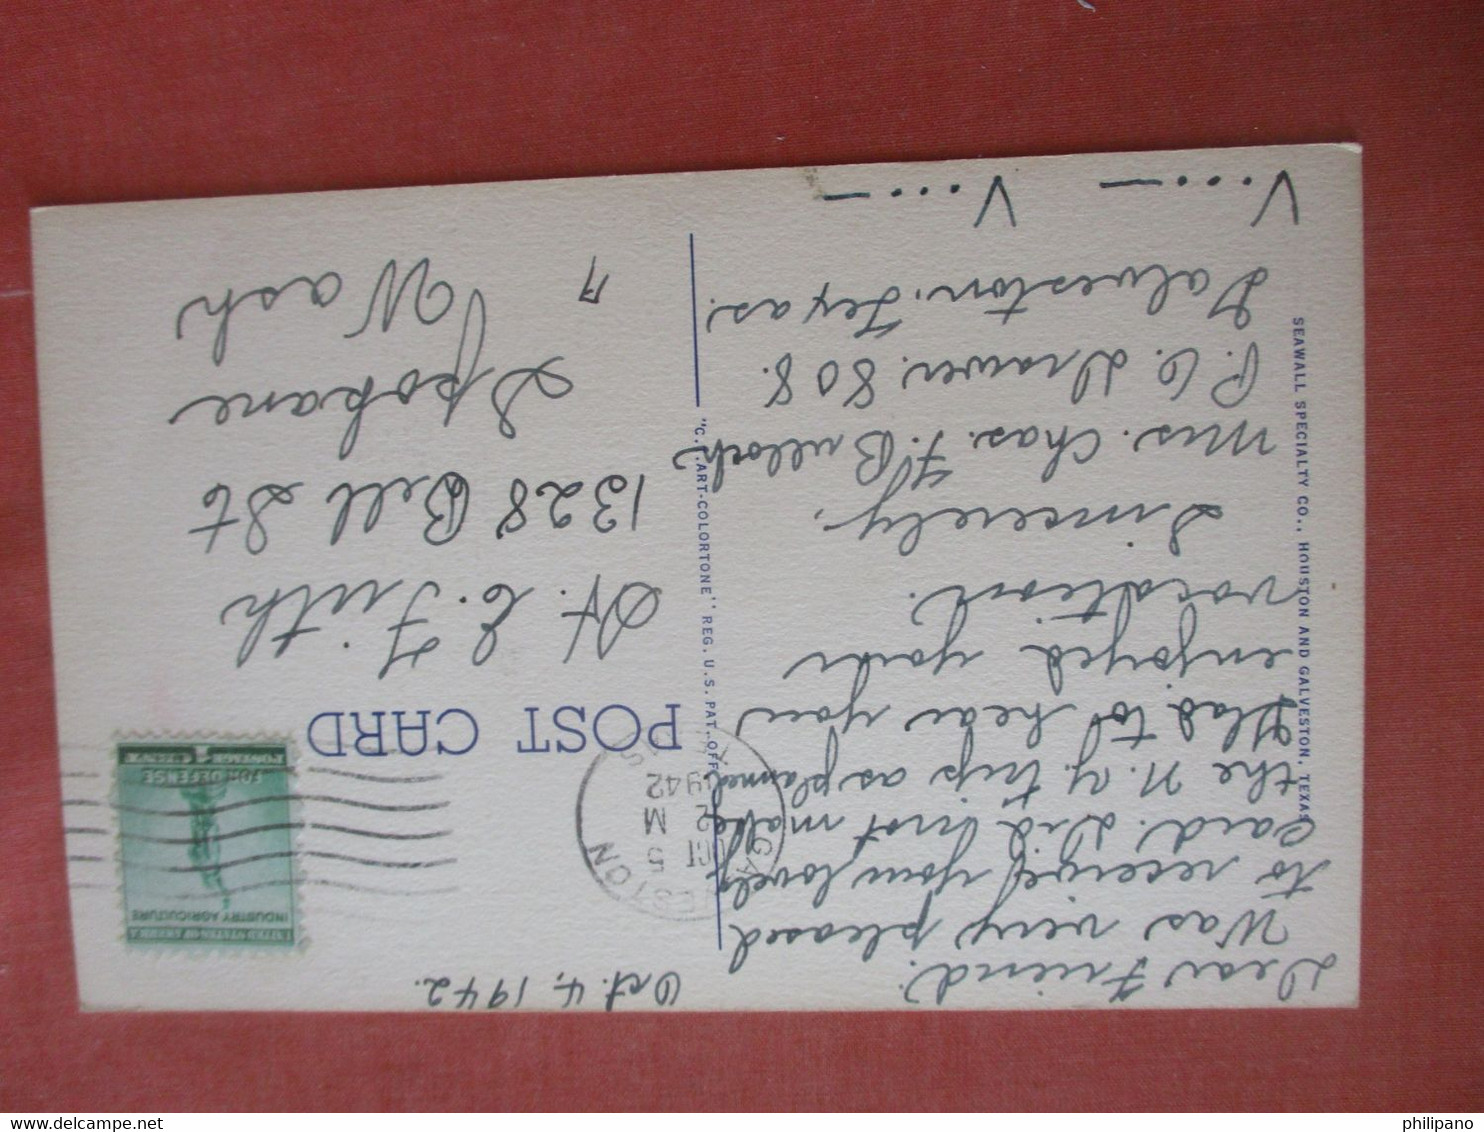 Oct. 4, 1942.
Dear Friend:
Was very pleased
to receive your lovely
card. Did not make
the N.Y. trip as planned
Glad to hear you
enjoyed your
vacation.
Sincerely,
Mrs. Chas. F. Bullock
P.O. Drawer. 808.
Galveston, Texas.
V....— V....—
SEAWALL SPECIALTY CO., HOUSTON AND GALVESTON, TEXAS
"C.T. ART-COLORTONE" REG. U.S. PAT. OFF.
POST CARD
GALVESTON
OCT 5
2 M
1942
UNITED STATES OF AMERICA
INDUSTRY AGRICULTURE
FOR DEFENSE
POSTAGE 1 CENT
H. E. Frith
1328 Bell St
Spokane
Wash
philipano
delcampe.net